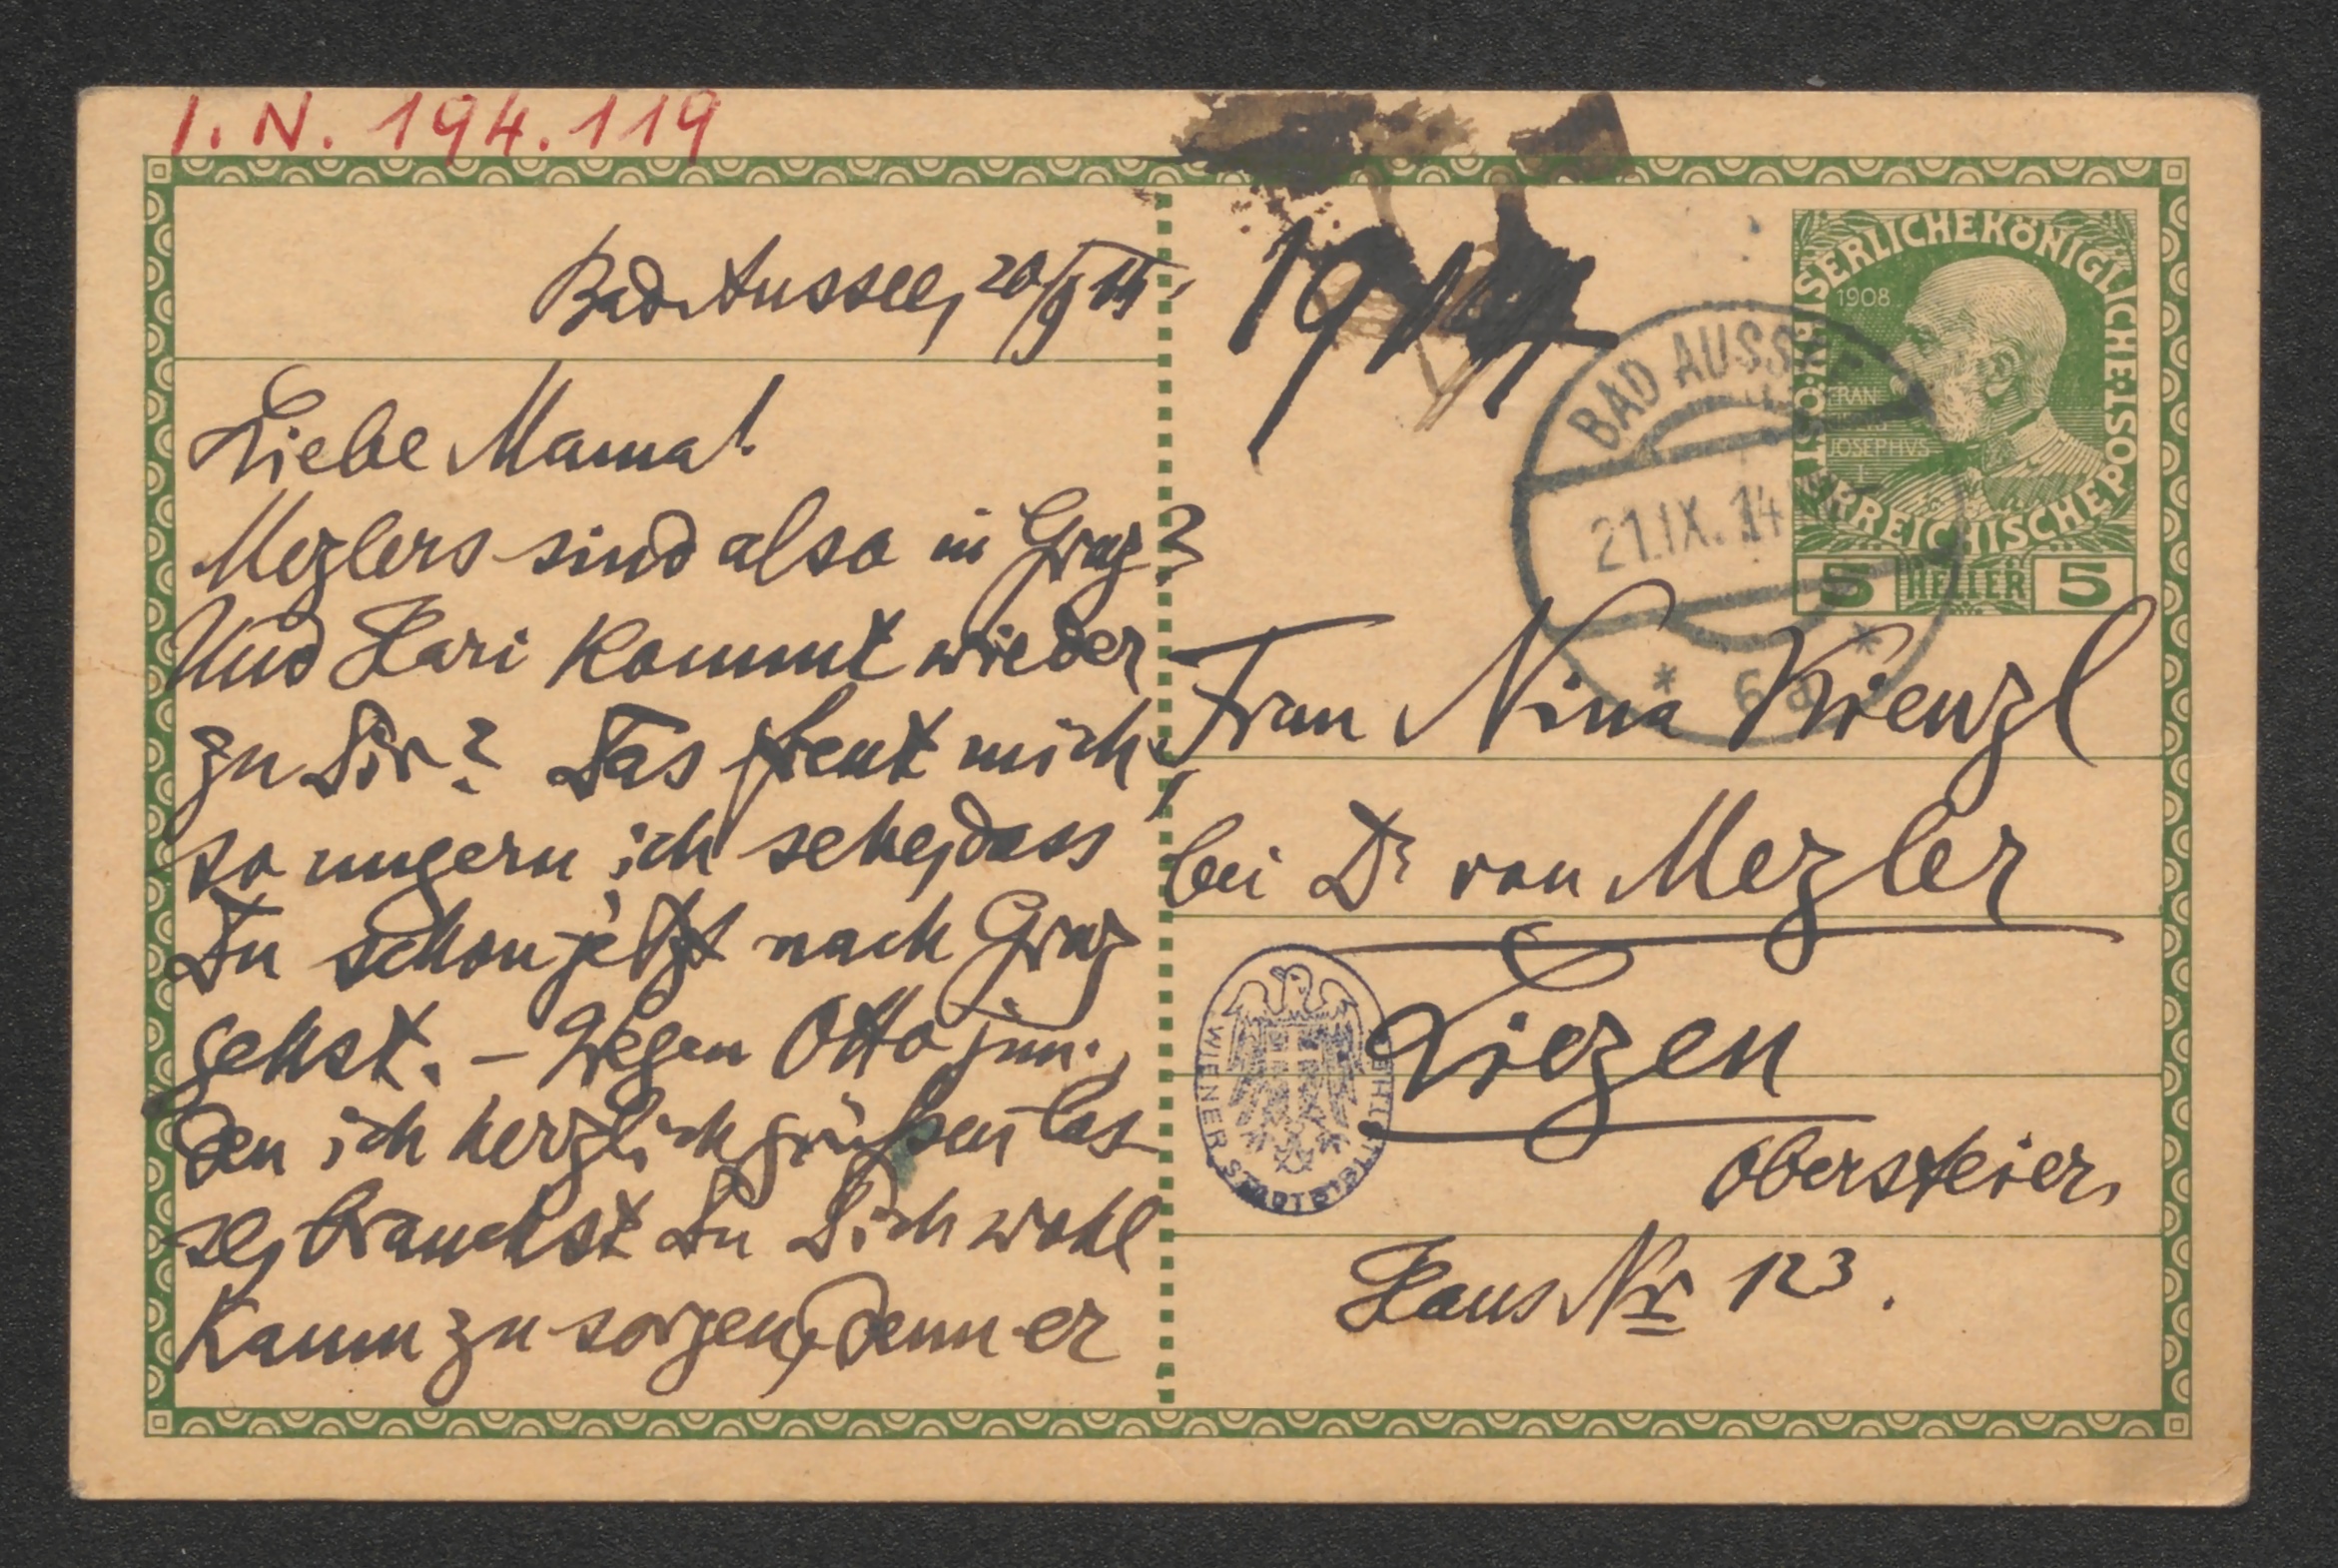 I. N. 194.119
Bad Aussee, 20/9 14.
Liebe Mama!
Mezlers sind also in Graz?
Und Hari kommt wieder
zu Dir? Das freut mich,
so ungern ich sehe, dass
Du schon jetzt nach Graz
gehst. – Wegen Otto jun.,
den ich herzlich grüßen las-
se, brauchst Du Dich wohl
kaum zu sorgen, denn er
1914
KAISERLICHEKÖNIGLICHE·ÖSTERREICHISCHEPOST
1908
FRAN
JOSEPHVS
I
5 HELLER 5
BAD AUSSEE
21.IX.14
* 6a *
Frau Nina Kienzl
bei Dr von Mezler
Liezen
Obersteier,
Haus Nr 123.
WIENER STADTBIBLIOTHEK